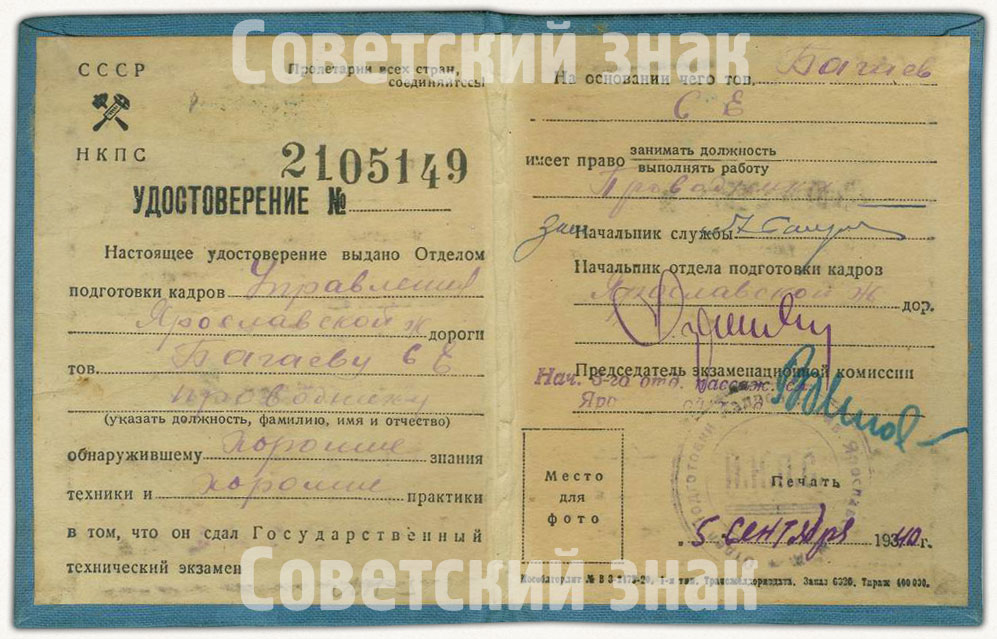 Советский знак
СССР
НКПС
Пролетарии всех стран,
соединяйтесь!
2105149
УДОСТОВЕРЕНИЕ №
Настоящее удостоверение выдано Отделом
подготовки кадров Управления
Ярославской ж дороги
тов. Багаеву С Е
проводнику
(указать должность, фамилию, имя и отчество)
обнаружившему хорошие знания
техники и хорошие практики
в том, что он сдал Государственный
технический экзамен
На основании чего тов. Багаев
С Е
имеет право занимать должность
выполнять работу
Проводника
Зам Начальник службы
Начальник отдела подготовки кадров
Ярославской ж дор.
Председатель экзаменационной комиссии
Нач. 3-го отд. пассаж.
Яро
Место
для
фото
Н.К.П.С
Печать
5 сентября 1940 г.
1-я тип. Трансжелдориздата. Заказ 6320. Тираж 400 000.
Советский знак